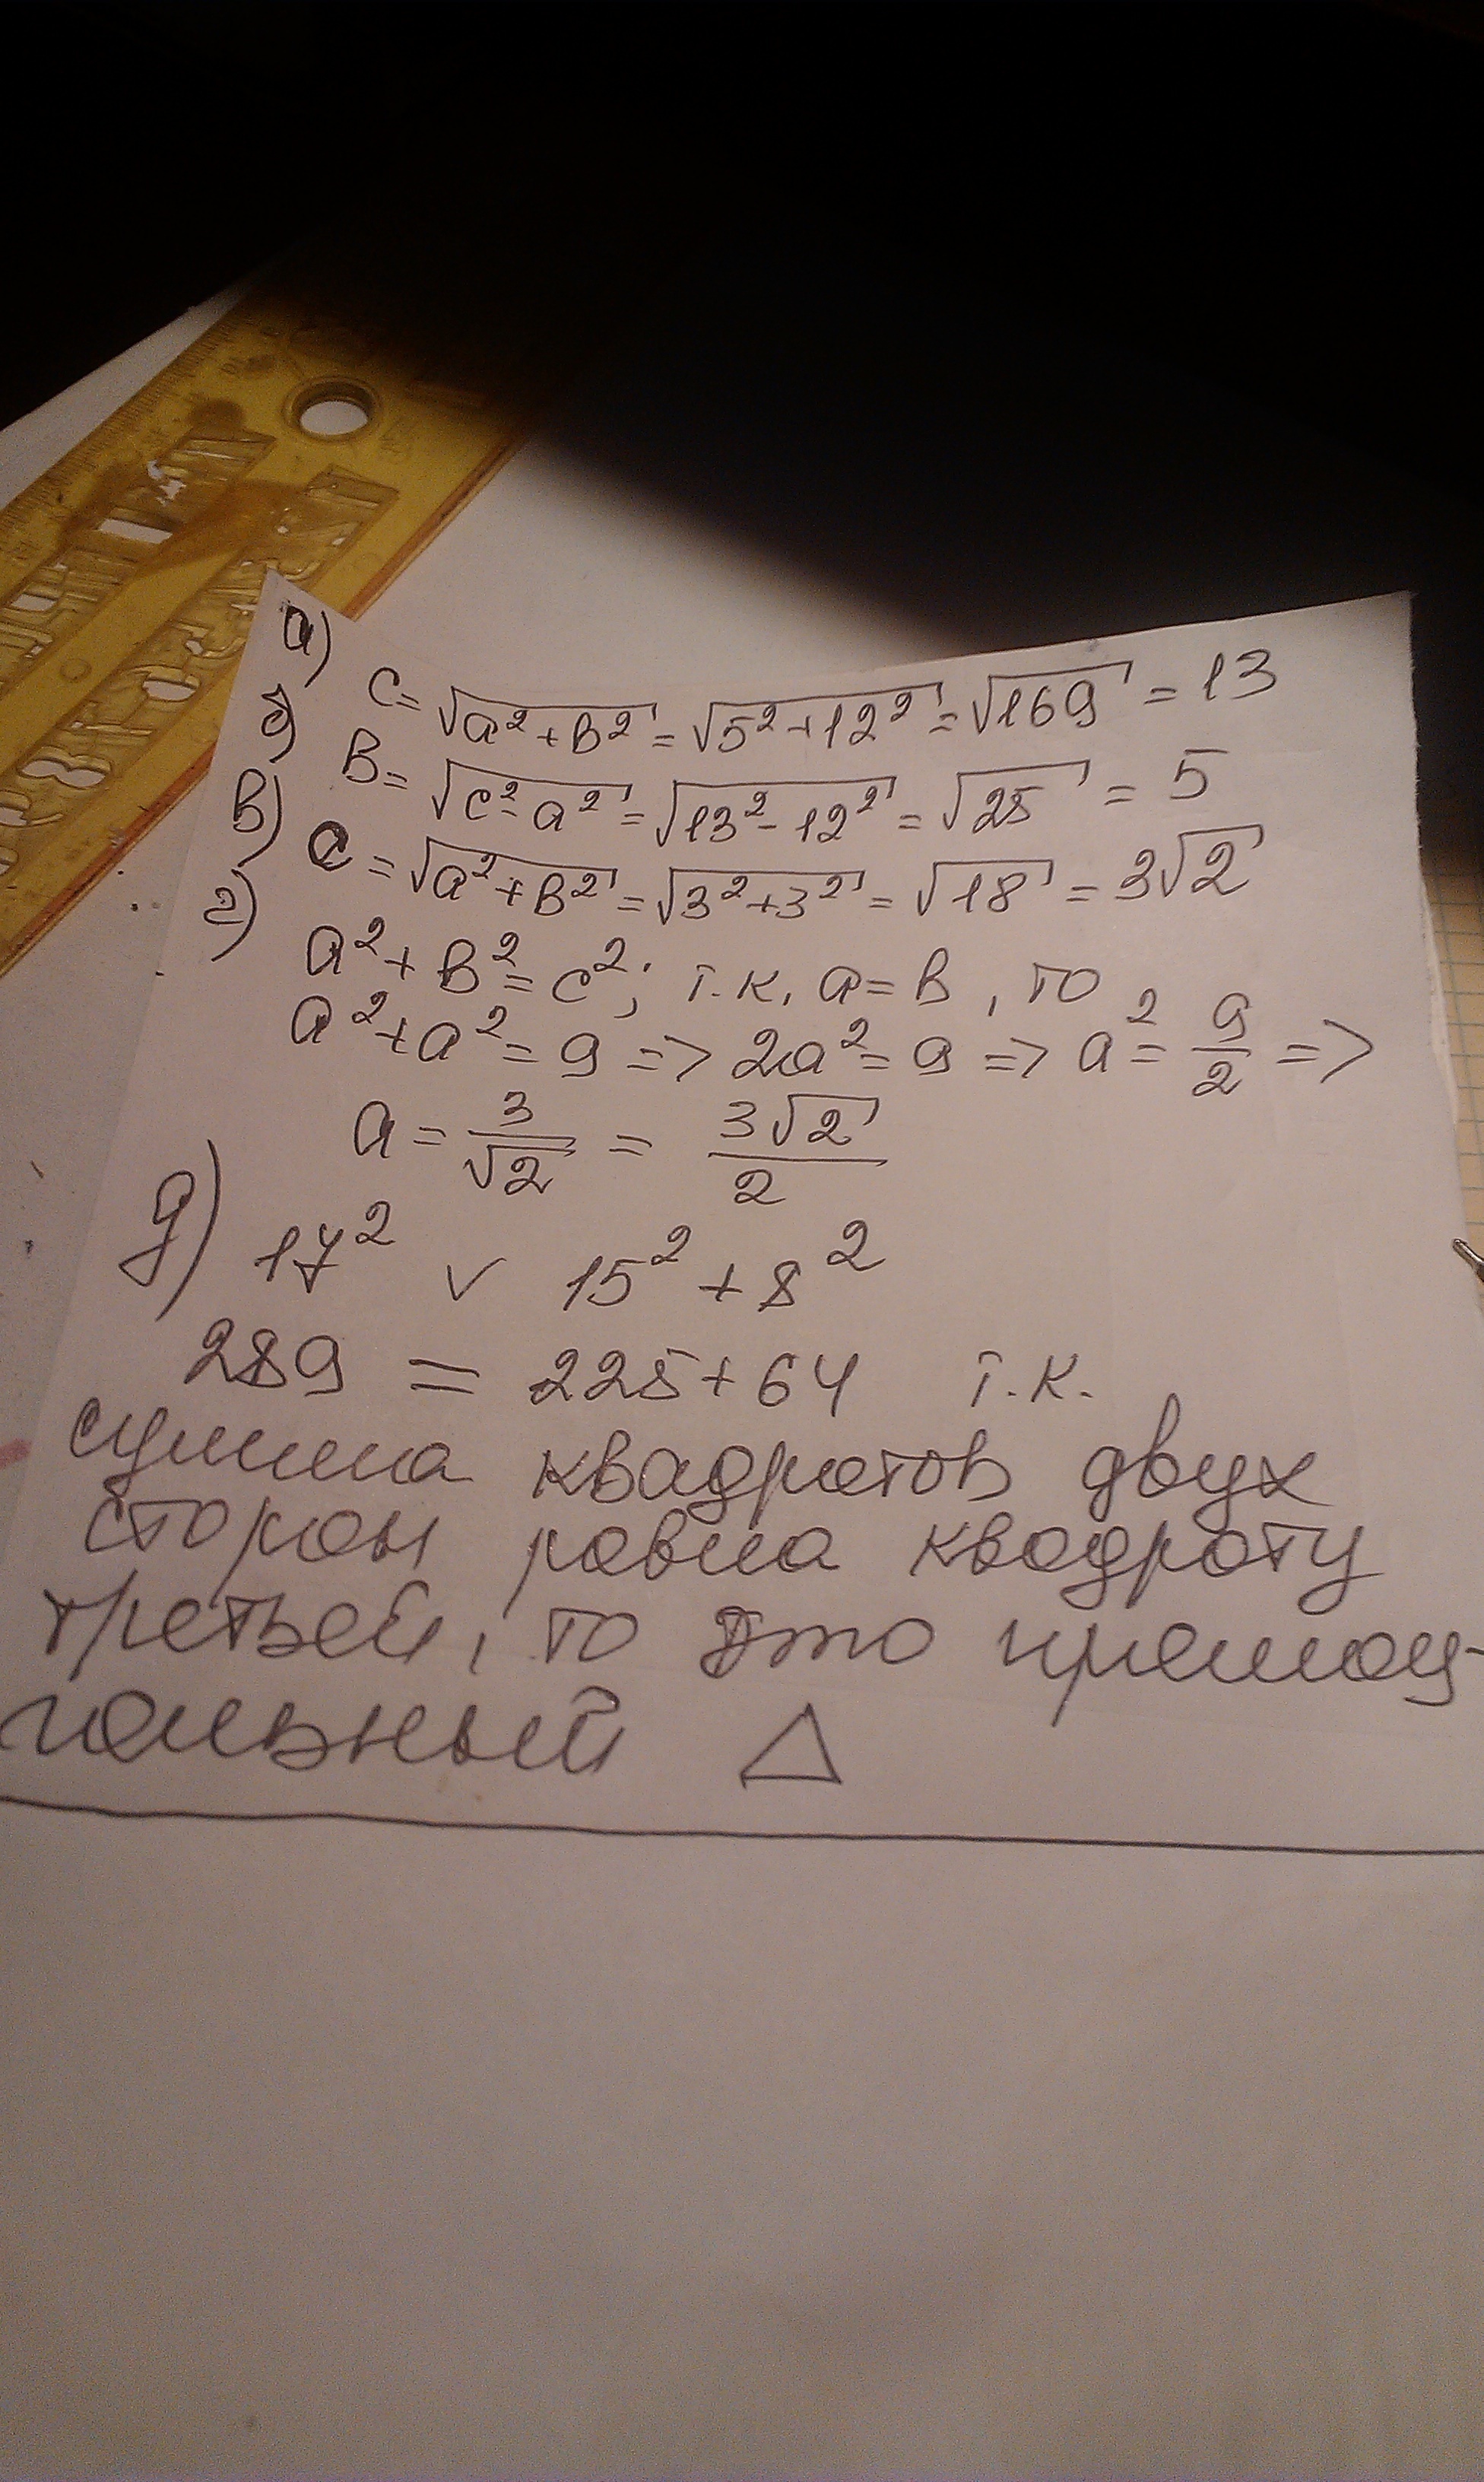 а) c = √(a² + b²) = √(5² + 12²) = √169 = 13
б) b = √(c² - a²) = √(13² - 12²) = √25 = 5
в) c = √(a² + b²) = √(3² + 3²) = √18 = 3√2
г) a² + b² = c²; т.к. a = b, то
a² + a² = 9 => 2a² = 9 => a² = 9/2 =>
a = 3/√2 = 3√2/2
д) 17² ∨ 15² + 8²
289 = 225 + 64 т.к.
сумма квадратов двух
сторон равна квадрату
третьей, то это прямоу-
гольный △